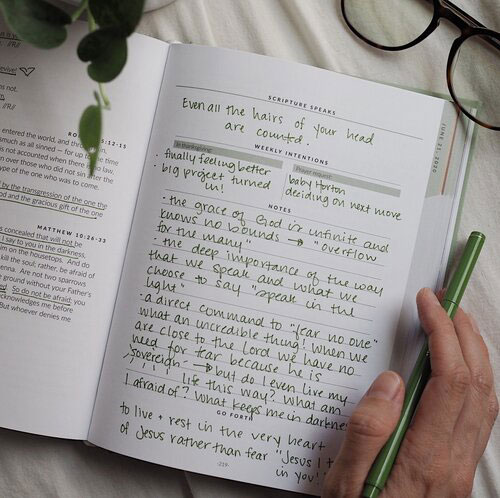 revive!
as not.
ROMANS 5:12-15
entered the world, and through
inasmuch as all sinned — for up to
not accounted when there is no
even over those who did not sin after the
type of the one who was to come.
by the transgression of the one the
and the gracious gift of the one
MATTHEW 10:26-33
is concealed that will not be
I say to you in the darkness,
on the housetops. And do
kill the soul; rather, be afraid of
Gehenna. Are not two sparrows
ground without your Father's
So do not be afraid; you
acknowledges me before
But whoever denies me
SCRIPTURE SPEAKS
Even all the hairs of your head
are counted.
WEEKLY INTENTIONS
In thanksgiving:
· finally feeling better
· big project turned
in!
Prayer request:
baby Horton
deciding on next move
NOTES
· the grace of God is infinite and
knows no bounds → "overflow
for the many"
· the deep importance of the way
that we speak and what we
choose to say "speak in the
light"
· a direct command to "fear no one"
what an incredible thing! When we
are close to the Lord we have no
need for fear because he is
sovereign → but do I even live my
life this way? What am
I afraid of? What keeps me in darkness
GO FORTH
to live + rest in the very heart
of Jesus rather than fear "Jesus I t
in you!"
-219-
JUNE 21, 2020